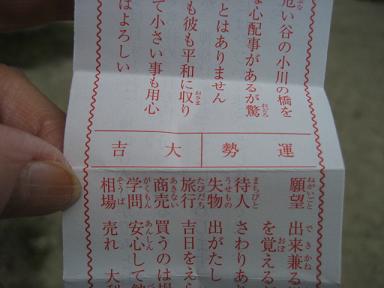 危い谷の小川の橋を
な心配事があるが驚
とはありません
も彼も平和に収り
て小さい事も用心
はよろしい
運勢
大吉
願望 出来兼る
を覚える
待人 さわりあ
失物 出がたし
旅行 吉日をえら
商売 買うのは
学問 安心して
相場 売れ 大